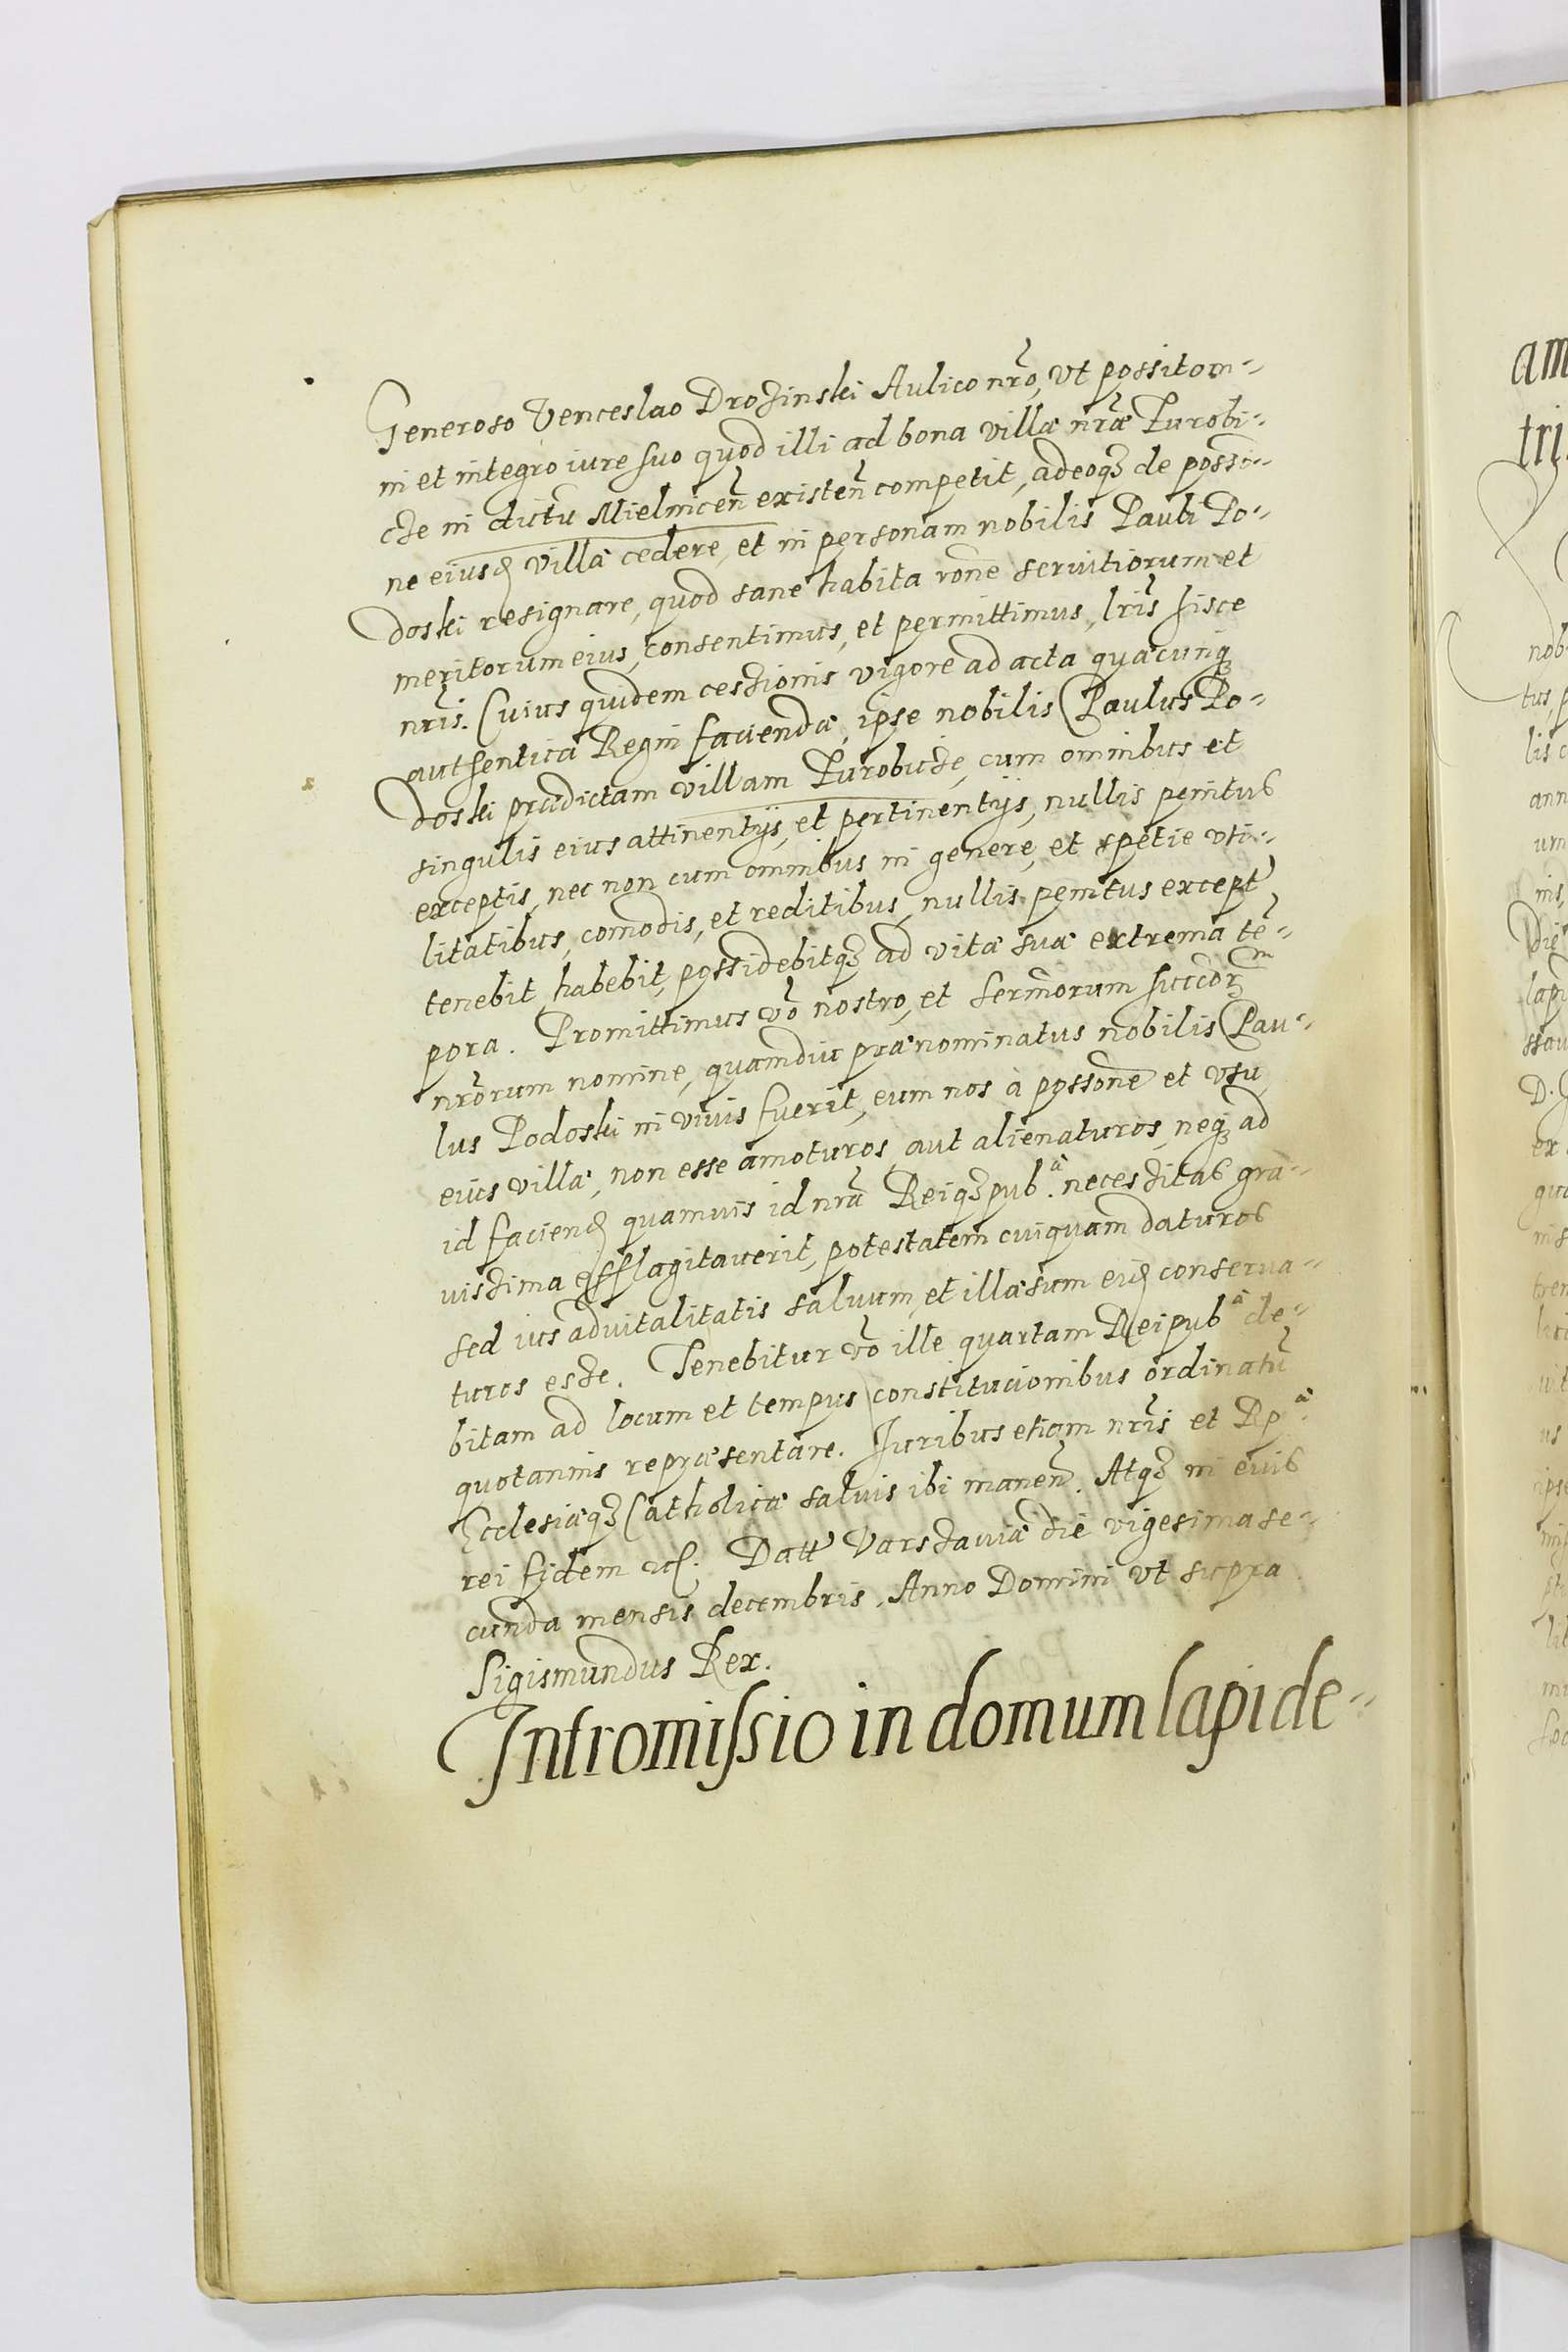 Generoso Venceslao Drozinski Aulico nr̃o, vt possit om-
ni et integro iure suo quod illi ad bona villæ nr̃æ Turobi-
cze in districtu Mielnicen̄ existen̄ competit, adeoqȝ de possio-
ne eiusd villæ cedere, et in personam nobilis Pauli Po-
doski resignare, quod sane habita rōne seruitiorum et
meritorum eius, consentimus, et permittimus, lr̃is hisce
nr̃is. Cuius quidem cessionis vigore ad acta quæcunqȝ
authentica Regni facienda, ipse nobilis Paulus Po-
doski prædictam villam Turobicze, cum omnibus et
singulis eius attinentijs, et pertinentijs, nullis penitus
exceptis, nec non cum omnibus in genere, et spetie vti-
litatibus, comodis, et reditibus, nullis penitus except
tenebit, habebit, possidebitqȝ ad vitæ suæ extrema tē-
pora. Promittimus vō nostro, et serm̃orum succcor̃m
nr̃orum nomine, quamdiu prænominatus nobilis Pau-
lus Podoski in viuis fuerit, eum nos à possone et vsu
eius villæ, non esse amoturos, aut alienaturos, neqȝ ad
id faciend quamuis id nr̃a Reiqȝpub.æ necessitas gra-
uissima efflagitauerit, potestatem cuiquam daturos
sed ius aduitalitatis saluum, et illæsum eid conserua-
turos esse. Tenebitur vō ille quartam Reipubæ de-
bitam ad locum et tempus constitucionibus ordinatū
quotannis repræsentare. Iuribus etiam nr̃is et Rpæ.
Ecclesiæqȝ Catholicæ saluis ibi manen̄. Atqȝ in euis
rei fidem etc. Datt Varssauiæ die vigesima se-
cunda mensis decembris, Anno Domini vt supra
Sigismundus Rex.
Intromissio in domum lapide-
am